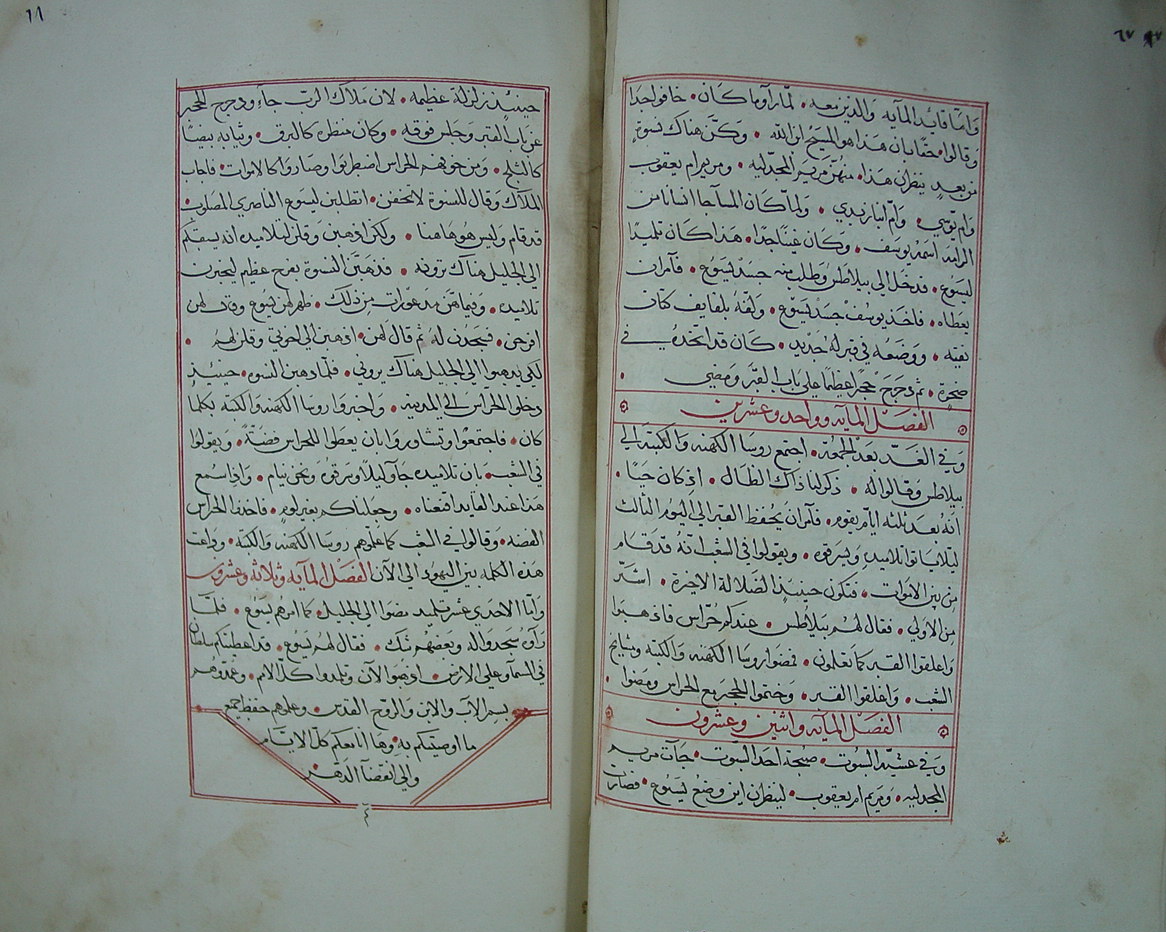 ٦٧
واما قايد المايه والذين معه • لما راوا ما كان • خافوا جدا
وقالوا • حقا بان هذا هو المسيح ابن الله • وكن هناك نسوه
من بعيد ينظرن هذا • منهن مريم المجدليه • ومريم ام يعقوب
وام يوسي • وام ابنا زبدي • ولما كان المسآ جا انسانا من
الرامه اسمه يوسف • وكان غنيا جدا • هذا كان تلميدا
ليسوع • فدخل الي بيلاطس وطلب منه جسد يسوع • فامر ان
يعطاه • فاخد يوسف جسد يسوع • ولفه بلفايف كتان
نقيه • ووضعه في قبر له جديد • كان قد اتخده في
صخرة • ثم دحرج حجرا عظيما علي باب القبر ومضي •
الفصل المايه وواحد وعشرين
وفي الغد بعد الجمعة • اجتمع روسا الكهنه والكتبة الي
بيلاطس وقالوا له • ذكرنا ذاك الظال • اذ كان حيا •
انه بعد ثلثه ايام يقوم • فامر ان يحفظ القبر الي اليوم الثالث
ليلا ياتوا تلاميده ويسرقوه • ويقولوا في الشعب انه قد قام
من بين الاموات • فتكون حينيذ الضلالة الاخيرة • اشر
من الاولي • فقال لهم بيلاطس • عندكم حراس فاذهبوا
واغلقوا القبر كما تعلمون • فمضوا روسا الكهنه والكتبة ومشايخ
الشعب • واغلقوا القبر • وختموا الحجر مع الحراس ومضوا •
الفصل المايه واثنين وعشرون
وفي عشية السبوت • صبحة احد السبوت • جات مريم
المجدليه • ومريم ام يعقوب • لينظران اين وضع يسوع • فصارت
٦٨
حينيذ زلزلة عظيمه • لان ملاك الرب جاء ودحرج الحجر
عن باب القبر وجلس فوقه • وكان منظره كالبرق • وثيابه بيضا
كالثلج • ومن خوفهم الحراس اضطربوا وصاروا كالاموات • فاجاب
الملاك وقال للنسوة لا تخفن • انطلبن ليسوع الناصري المصلوب •
قد قام وليس هو هاهنا • ولكن اذهبن وقلن لتلاميده انه يسبقكم
الي الجليل هناك ترونه • فذهبن النسوة بفرح عظيم ليخبرن
تلاميده • وفيما هن مدعورات من ذلك • ظهر لهن يسوع وقال لهن
افرحن • فسجدن له ثم قال لهن • اذهبن الي اخوتي وقلن لهم •
لكي يدهبوا الي الجليل هناك يروني • فلما دهبن النسوه • حينيذ
دخلوا الحراس الي المدينه • واخبروا روسا الكهنه والكتبه بكلما
كان • فاجتمعوا وتشاوروا بان يعطوا للحراس فضة • ويقولوا
في الشعب • بان تلاميده جاوا ليلا وسرقوه ونحن نيام • واذا سمع
هذا عند القايد اقنعناه • وجعلناكم بغير لوم • فاخدوا الحراس
الفضه • وقالوا في الشعب كما علموهم روسا الكهنه والكتبه • وذاعت
هذه الكلمه بين اليهود الي الآن الفصل المايه وثلاثه وعشرون
واما الاحدي عشر تلميد مضوا الي الجليل • كما امرهم يسوع • فلما
راوه سجدوا له وبعضهم شك • فقال لهم يسوع • قد اعطيتكم سلطان
في السمآ وعلي الارض • امضوا الآن وتلمدوا كل الامم • وعمدوهم
بسم الآب والابن والروح القدس • وعلموهم حفظ جميع
ما اوصيتكم به • وها انا معكم كل الايام
والي انقضآ الدهر